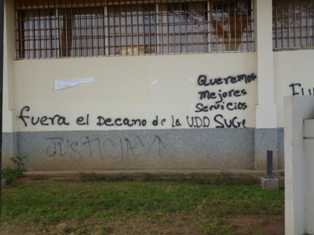 Queremos
Mejores
Servicios
fuera el Decano de la UDO Sucre
JUSTICIA
Fu